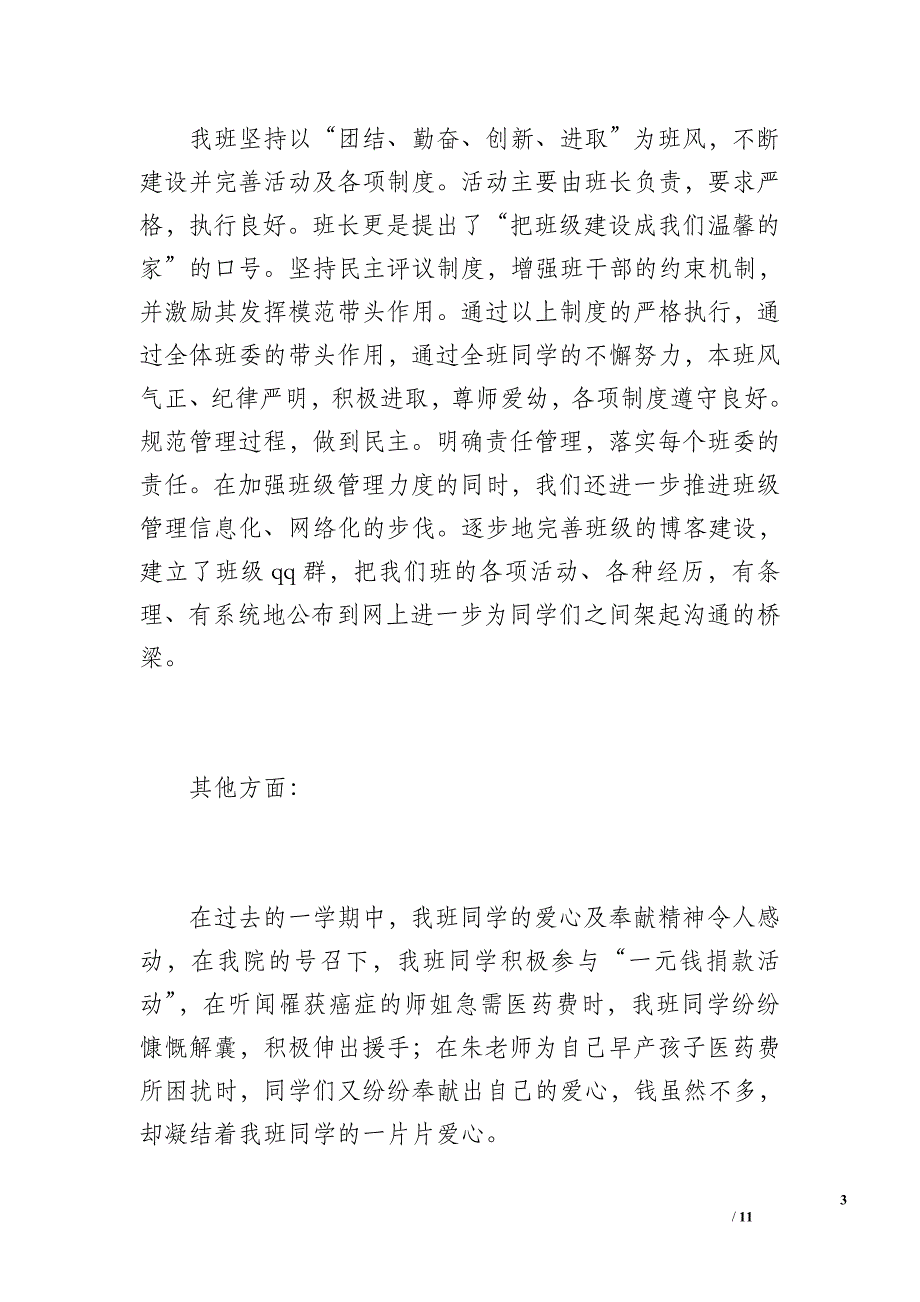 我班坚持以“团结、勤奋、创新、进取”为班风，不断
建设并完善活动及各项制度。活动主要由班长负责，要求严
格，执行良好。班长更是提出了“把班级建设成我们温馨的
家”的口号。坚持民主评议制度，增强班干部的约束机制，
并激励其发挥模范带头作用。通过以上制度的严格执行，通
过全体班委的带头作用，通过全班同学的不懈努力，本班风
气正、纪律严明，积极进取，尊师爱幼，各项制度遵守良好。
规范管理过程，做到民主。明确责任管理，落实每个班委的
责任。在加强班级管理力度的同时，我们还进一步推进班级
管理信息化、网络化的步伐。逐步地完善班级的博客建设，
建立了班级 qq 群，把我们班的各项活动、各种经历，有条
理、有系统地公布到网上进一步为同学们之间架起沟通的桥
梁。
其他方面：
在过去的一学期中，我班同学的爱心及奉献精神令人感
动，在我院的号召下，我班同学积极参与“一元钱捐款活
动”，在听闻罹获癌症的师姐急需医药费时，我班同学纷纷
慷慨解囊，积极伸出援手；在朱老师为自己早产孩子医药费
所困扰时，同学们又纷纷奉献出自己的爱心，钱虽然不多，
却凝结着我班同学的一片片爱心。
3
/ 11